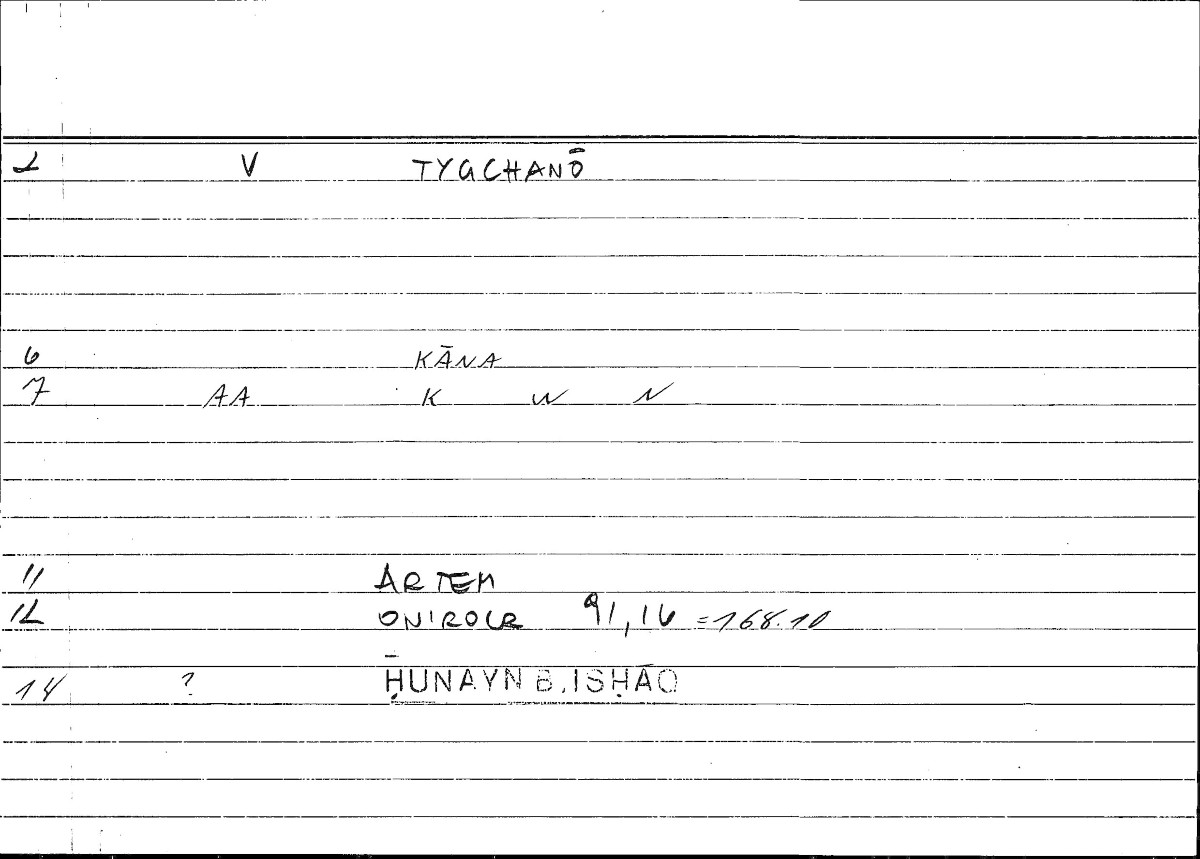 2 V TYGCHANŌ
6 KĀNA
7 AA K W N
11 ARTEM
12 ONIROCR 91,16 =168.10
14 ? ḤUNAYN B. ISḤĀQ